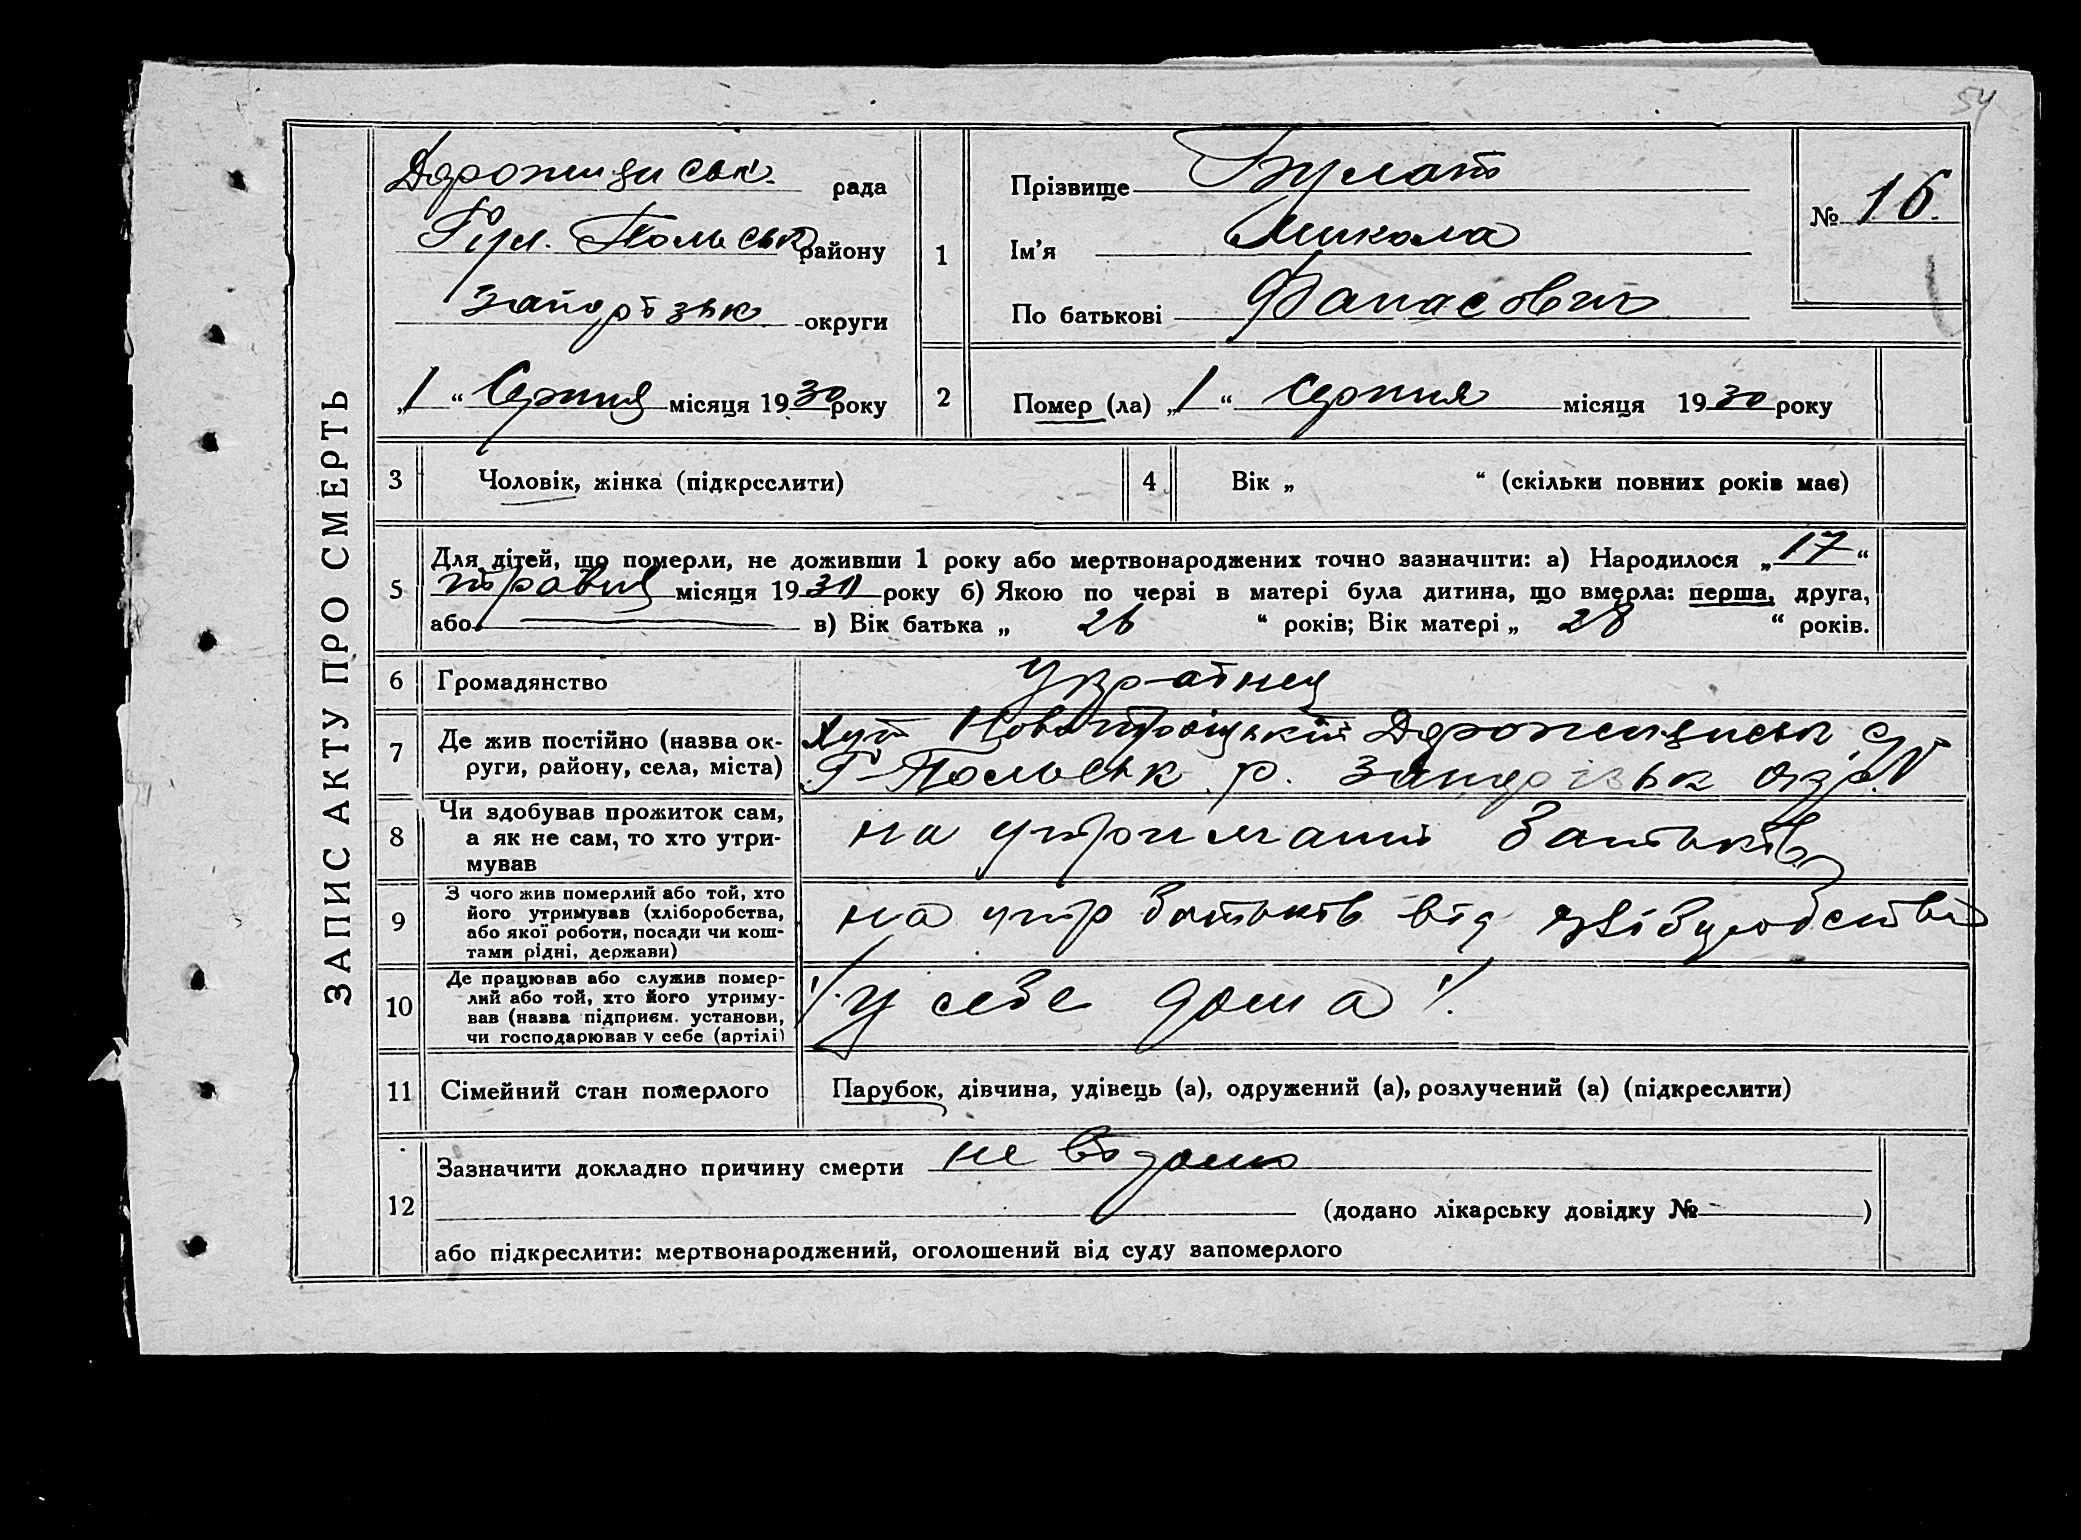 54
ЗАПИС АКТУ ПРО СМЕРТЬ
Дорожнянськ. рада
Гул. Польськ району
Запорізьк округи
„1“ Серпня місяця 1930 року
1
Прізвище Булат
Ім'я Микола
По батькові Панасович
№ 16.
2 Помер (ла) „1“ серпня місяця 1930 року
3 Чоловік, жінка (підкреслити)
4 Вік „ “ (скільки повних років має)
5 Для дітей, що померли, не доживши 1 року або мертвонароджених точно зазначити: а) Народилося „17“
травня місяця 1930 року б) Якою по черзі в матері була дитина, що вмерла: перша, друга,
або — в) Вік батька „ 26 “ років; Вік матері „ 28 “ років.
6 Громадянство
українец
7 Де жив постійно (назва ок-
руги, району, села, міста)
Хут Новотроіцький с/р
Г-Польськ р. Запорізьк окр.
8 Чи здобував прожиток сам,
а як не сам, то хто утри-
мував
на утриманні батьків
9 З чого жив померлий або той, хто
його утримував (хліборобства,
або якої роботи, посади чи кош-
тами рідні, держави)
на утр батьків від хліборобства
10 Де працював або служив помер-
лий або той, хто його утриму-
вав (назва підприєм. установи,
чи господарював у себе (артілі)
у себе дома
11 Сімейний стан померлого
Парубок, дівчина, удівець (а), одружений (а), розлучений (а) (підкреслити)
12 Зазначити докладно причину смерти не відомо
(додано лікарську довідку № )
або підкреслити: мертвонароджений, оголошений від суду запомерлого